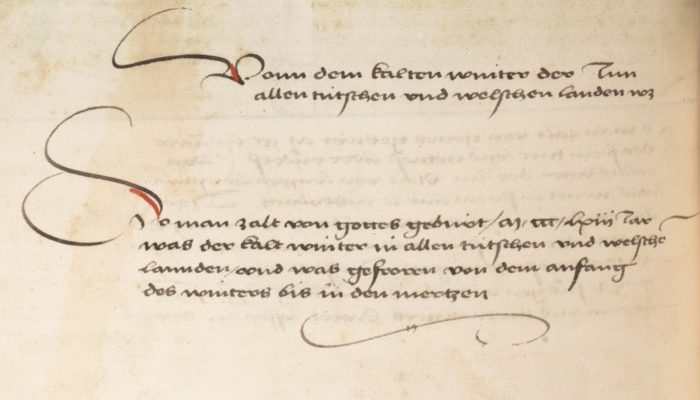 Vonn dem kalten winter der Inn
allen tütschen vnd welschen landen wz
So man zalt von gottes geburt / M · ccc · lxiii Jar
was der kalt winter in allen tütschen vnd welschē
lannden / vnd was gefroren von dem anfang
des winters bis in den mertzen